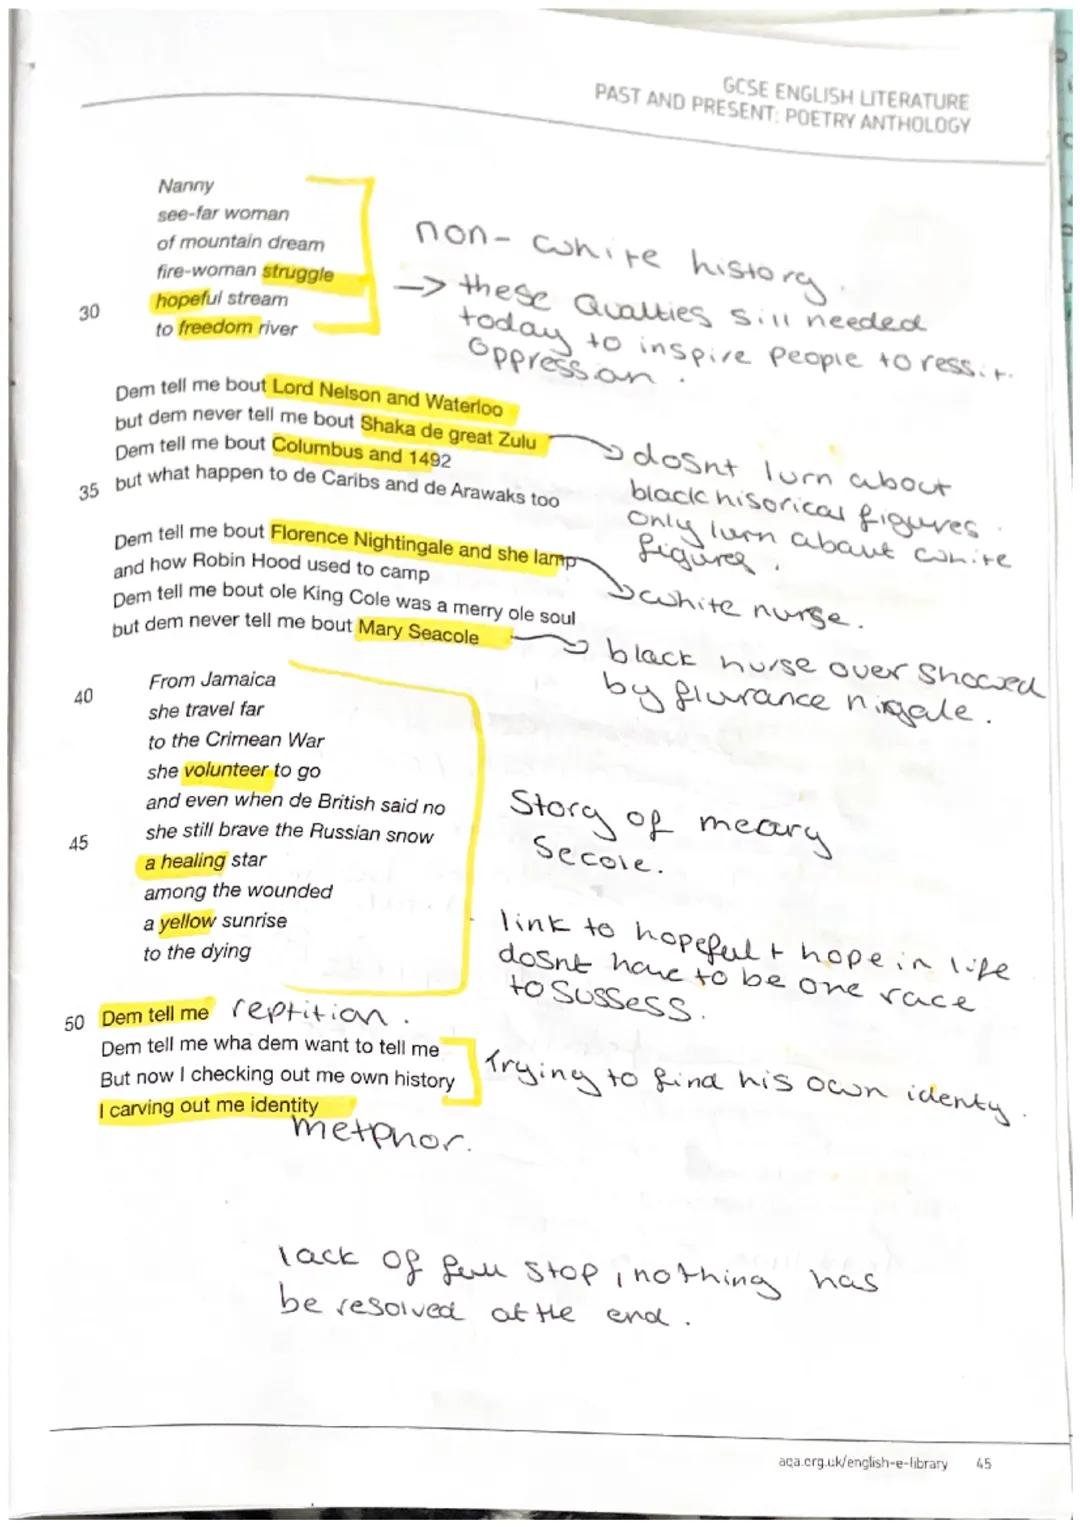 GCSE ENGLISH LITERATURE
PAST AND PRESENT: POETRY ANTHOLOGY
Nanny
see-far woman
of mountain dream
fire-woman struggle
30 hopeful stream
to freedom river
non-white history.
→ these Qualties sill needed
today to inspire people to ressit.
oppression.
Dem tell me bout Lord Nelson and Waterloo
but dem never tell me bout Shaka de great Zulu
Dem tell me bout Columbus and 1492
35 but what happen to de Caribs and de Arawaks too
dosnt lurn about
black hisorical figures.
only lurn abaut white
figures.
Dem tell me bout Florence Nightingale and she lamp
and how Robin Hood used to camp
Dem tell me bout ole King Cole was a merry ole soul
but dem never tell me bout Mary Seacole
white nurse.
black nurse over Showed
by flurance nirgale.
40 From Jamaica
she travel far
to the Crimean War
she volunteer to go
and even when de British said no
45 she still brave the Russian snow
a healing star
among the wounded
a yellow sunrise
to the dying
Story of meary
Secole.
link to hopeful + hope in life
dosnt have to be one race
to Sussess.
50 Dem tell me reptition.
Dem tell me wha dem want to tell me
But now I checking out me own history
I carving out me identity
Trying to find his own identy.
metphor.
lack of full stop, nothing has
be resolved at the end.
aqa.org.uk/english-e-library 45